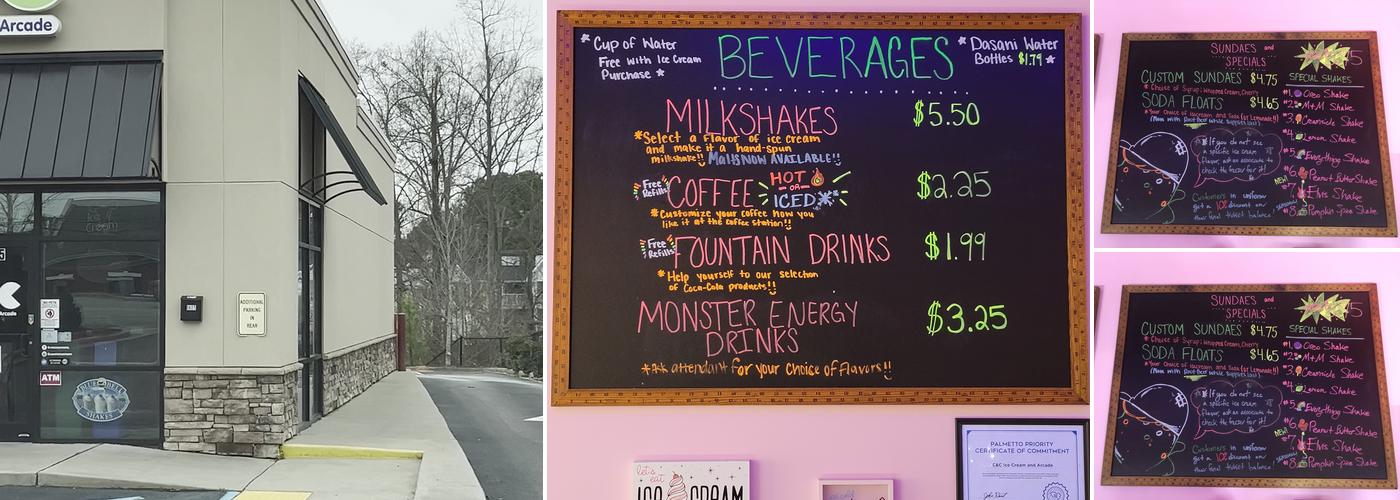 Arcade
Ice
Cream
5
Arcade
ADDITIONAL
PARKING
IN
REAR
ATM
BLUE BELL
SHAKES
* Cup of Water
Free with Ice Cream
Purchase *
BEVERAGES
* Dasani Water
Bottles $1.79 *
MILKSHAKES $5.50
*Select a flavor of ice cream
and make it a hand-spun
milkshake!! Malts NOW AVAILABLE!!
Free
Refills
COFFEE HOT
OR
ICED
$2.25
*Customize your coffee how you
like it at the coffee station!!
Free
Refills
FOUNTAIN DRINKS $1.99
*Help yourself to our selection
of Coca-Cola products!!
MONSTER ENERGY
DRINKS
$3.25
*Ask attendant for your choice of flavors!!
let's
eat
ICE CREAM
PALMETTO PRIORITY
CERTIFICATE OF COMMITMENT
C&C Ice Cream and Arcade
SUNDAES and
SPECIALS
CUSTOM SUNDAES $4.75
* Choice of Syrup, Whipped Cream, Cherry
SODA FLOATS $4.65
*Your Choice of Icecream and Soda (or Lemonade!!)
(Now with Root-Beer while supplies last)
* If you do not see
a specific ice cream
flavor, ask an associate to
check the freezer for it!
Customers in uniform
get a 10% discount on
their final ticket balance
SPECIAL SHAKES
#1. Oreo Shake
#2. M+M Shake
#3. Creamsicle Shake
#4. Lemon Shake
#5. Everything Shake
#6. Peanut Butter Shake
NEW!
#7. Elvis Shake
SEASONAL
#8. Pumpkin Spice Shake
SUNDAES and
SPECIALS
CUSTOM SUNDAES $4.75
* Choice of Syrup, Whipped Cream, Cherry
SODA FLOATS $4.65
*Your Choice of Icecream and Soda (or Lemonade!!)
(Now with Root-Beer while supplies last)
* If you do not see
a specific ice cream
flavor, ask an associate to
check the freezer for it!
Customers in uniform
get a 10% discount on
their final ticket balance
SPECIAL SHAKES
#1. Oreo Shake
#2. M+M Shake
#3. Creamsicle Shake
#4. Lemon Shake
#5. Everything Shake
#6. Peanut Butter Shake
NEW!
#7. Elvis Shake
SEASONAL
#8. Pumpkin Spice Shake